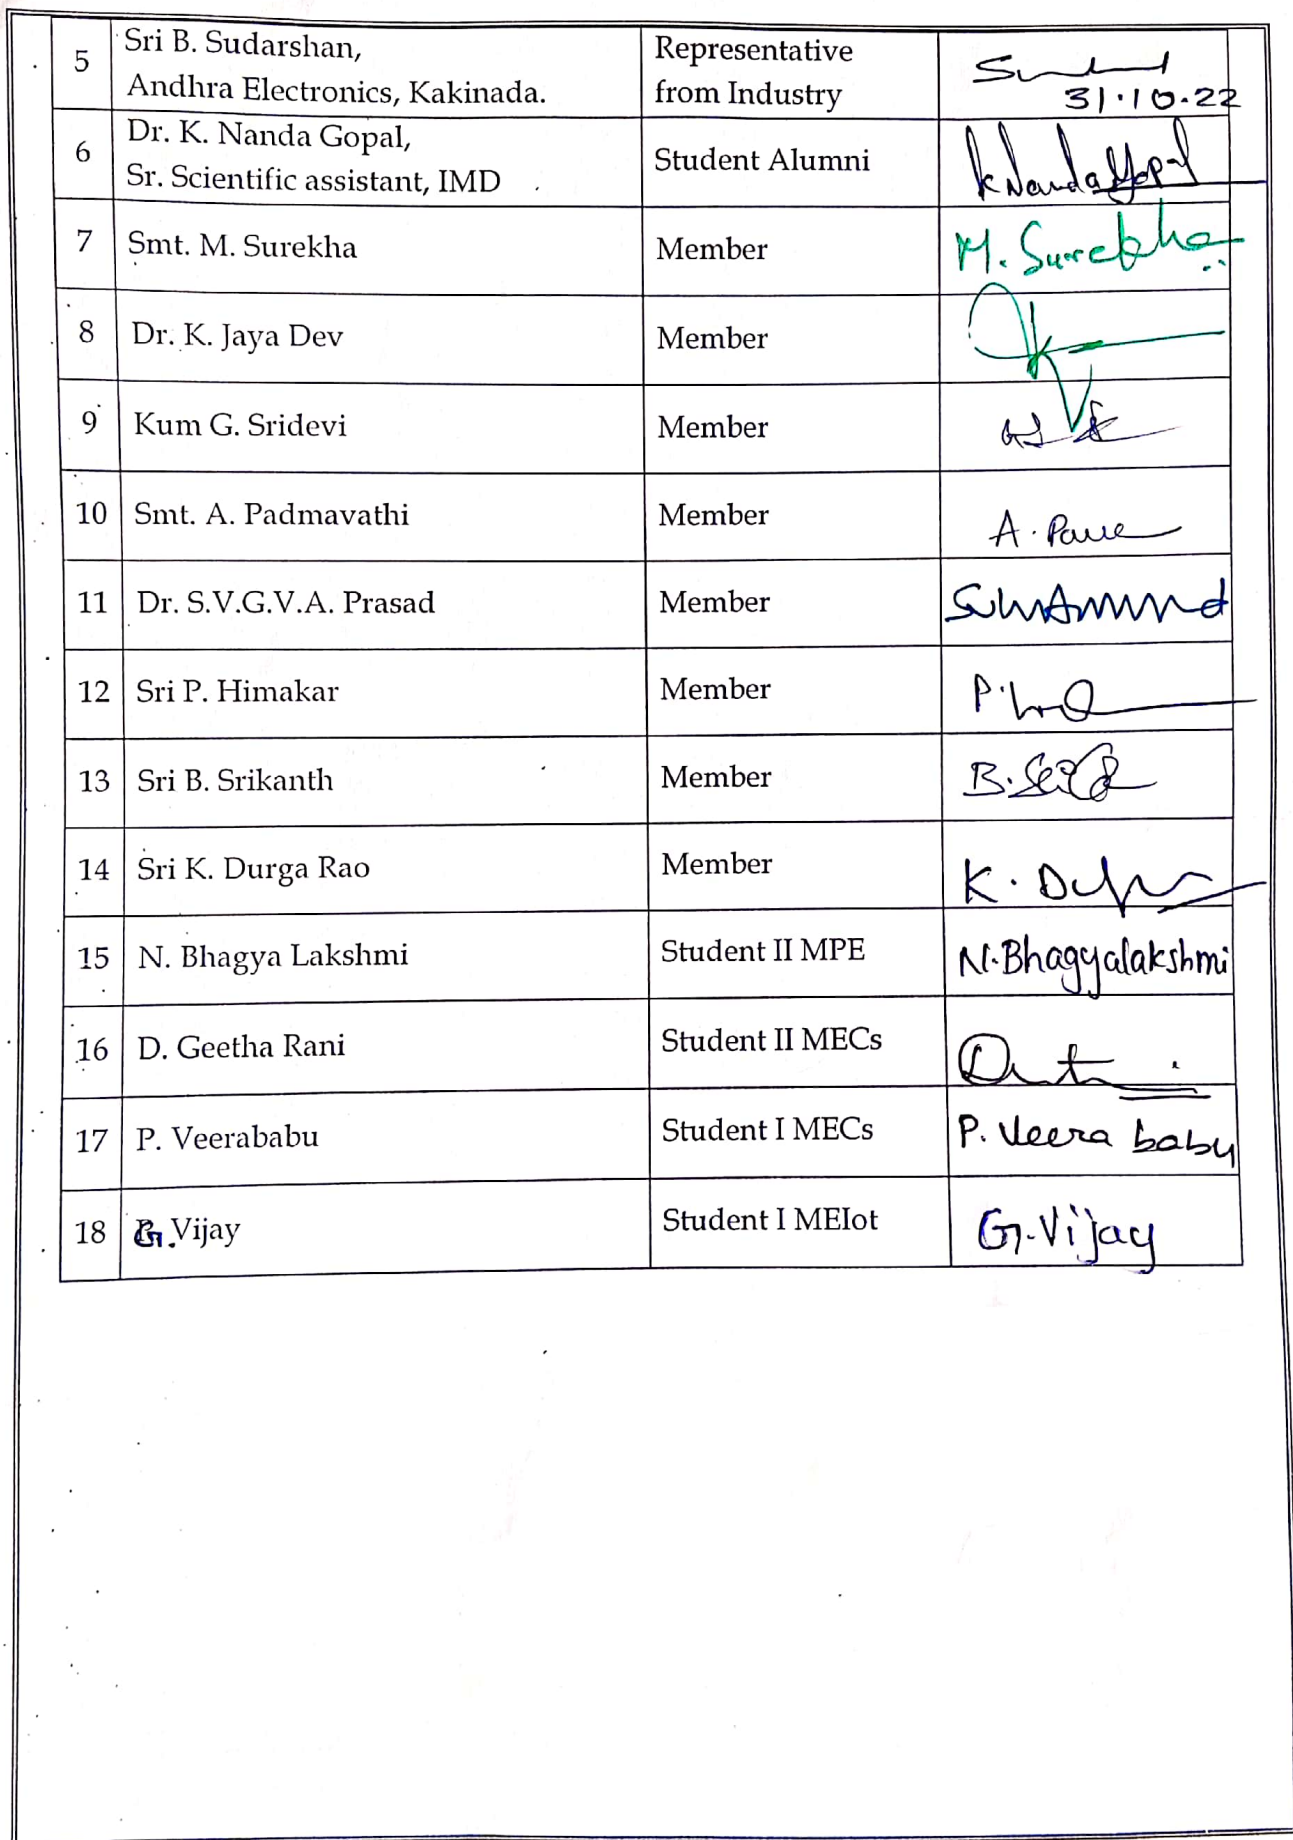 5 Sri B. Sudarshan, Representative
Andhra Electronics, Kakinada. from Industry
31.10.22
6 Dr. K. Nanda Gopal, Student Alumni K Nanda Gopal
Sr. Scientific assistant, IMD
7 Smt. M. Surekha Member M. Surekha
8 Dr. K. Jaya Dev Member
9 Kum G. Sridevi Member
10 Smt. A. Padmavathi Member A.
11 Dr. S.V.G.V.A. Prasad Member
12 Sri P. Himakar Member P.
13 Sri B. Srikanth Member B.
14 Sri K. Durga Rao Member K.
15 N. Bhagya Lakshmi Student II MPE N.Bhagyalakshmi
16 D. Geetha Rani Student II MECs
17 P. Veerababu Student I MECs P. Veera babu
18 G. Vijay Student I MEIot G.Vijay